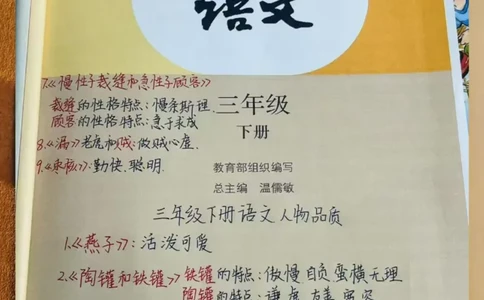 语文
7.《慢性子裁缝和急性子顾客》
裁缝的性格特点：慢条斯理.
顾客的性格特点：急于求成
三年级
下册
8.《漏》老虎和贼：做贼心虚.
9.《枣核》：勤快、聪明.
教育部组织编写
总主编 温儒敏
三年级下册语文人物品质
1.《燕子》：活泼可爱
2.《陶罐和铁罐》铁罐的特点：傲慢自负蛮横无理
陶罐的特点：谦虚 友善